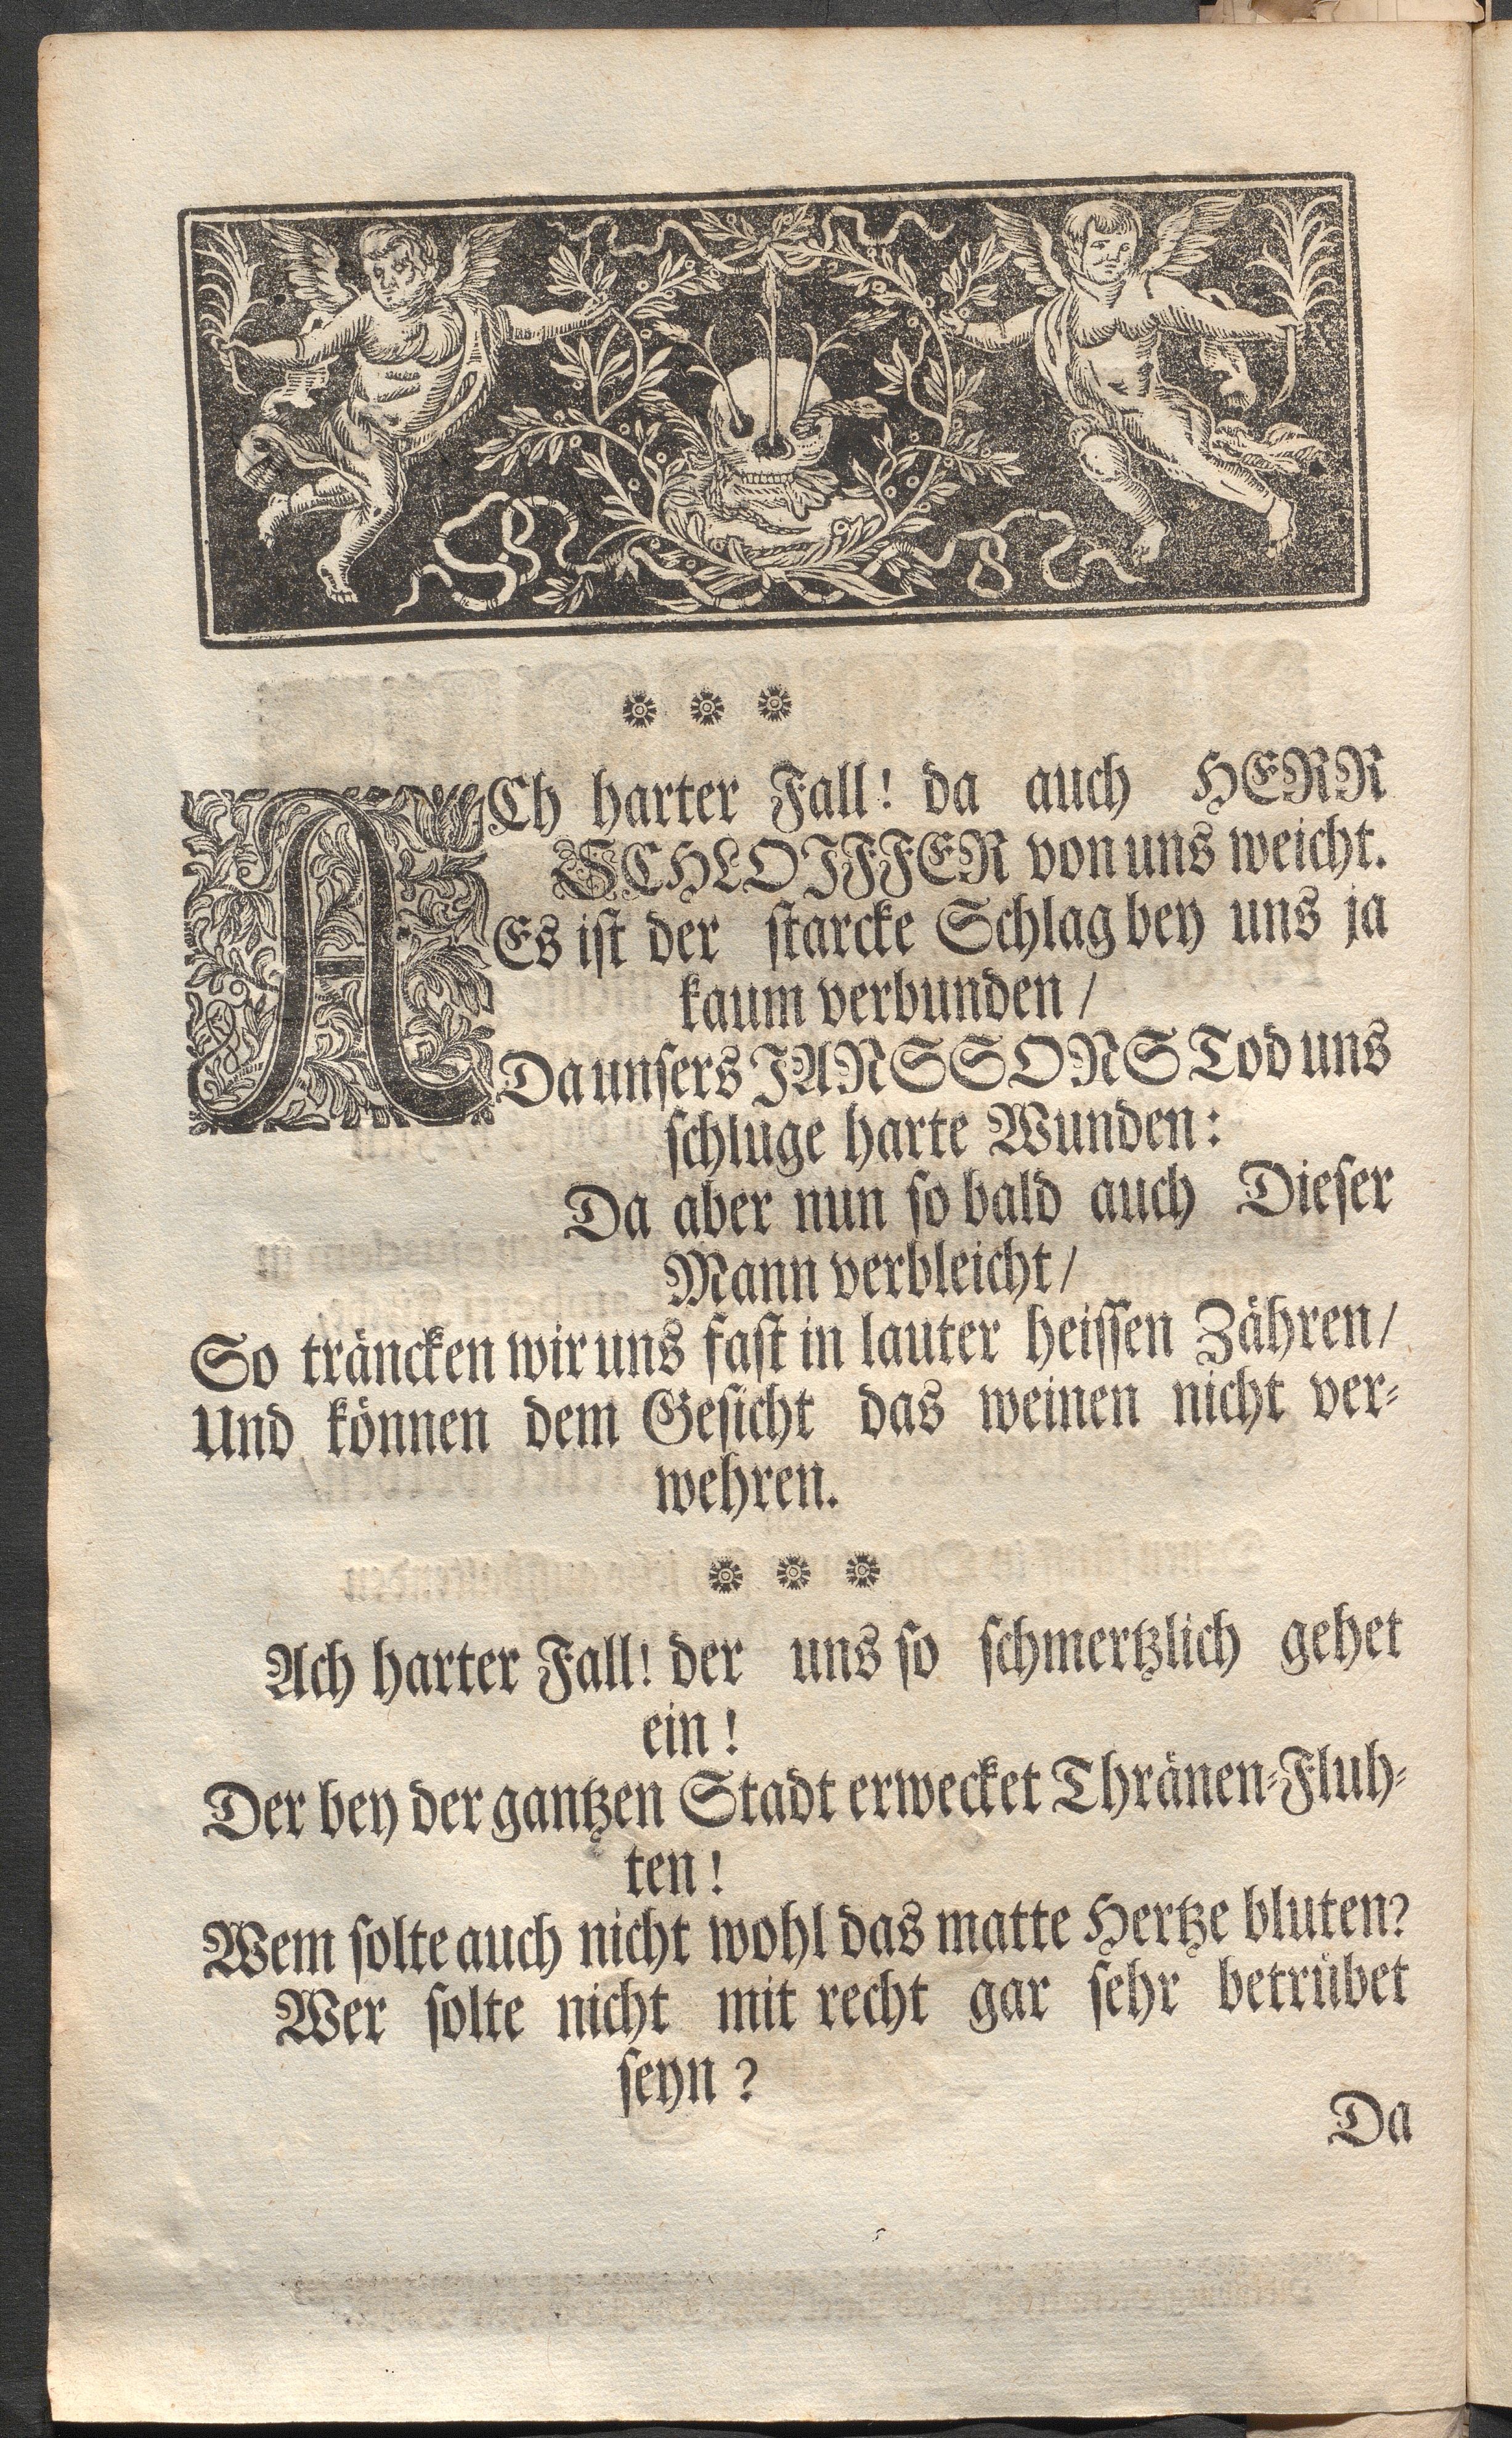 ACh harter Fall! da auch HERR
SCHLOIFFER von uns weicht.
Es ist der starcke Schlag bey uns ja
kaum verbunden /
Da unsers JANSSONS Tod uns
schluge harte Wunden:
Da aber nun so bald auch Dieser
Mann verbleicht /
So träncken wir uns fast in lauter heissen Zähren /
Und können dem Gesicht das weinen nicht ver-
wehren.
Ach harter Fall! der uns so schmertzlich gehet
ein!
Der bey der gantzen Stadt erwecket Thränen-Fluh-
ten!
Wem solte auch nicht wohl das matte Hertze bluten?
Wer solte nicht mit recht gar sehr betrübet
seyn?
Da